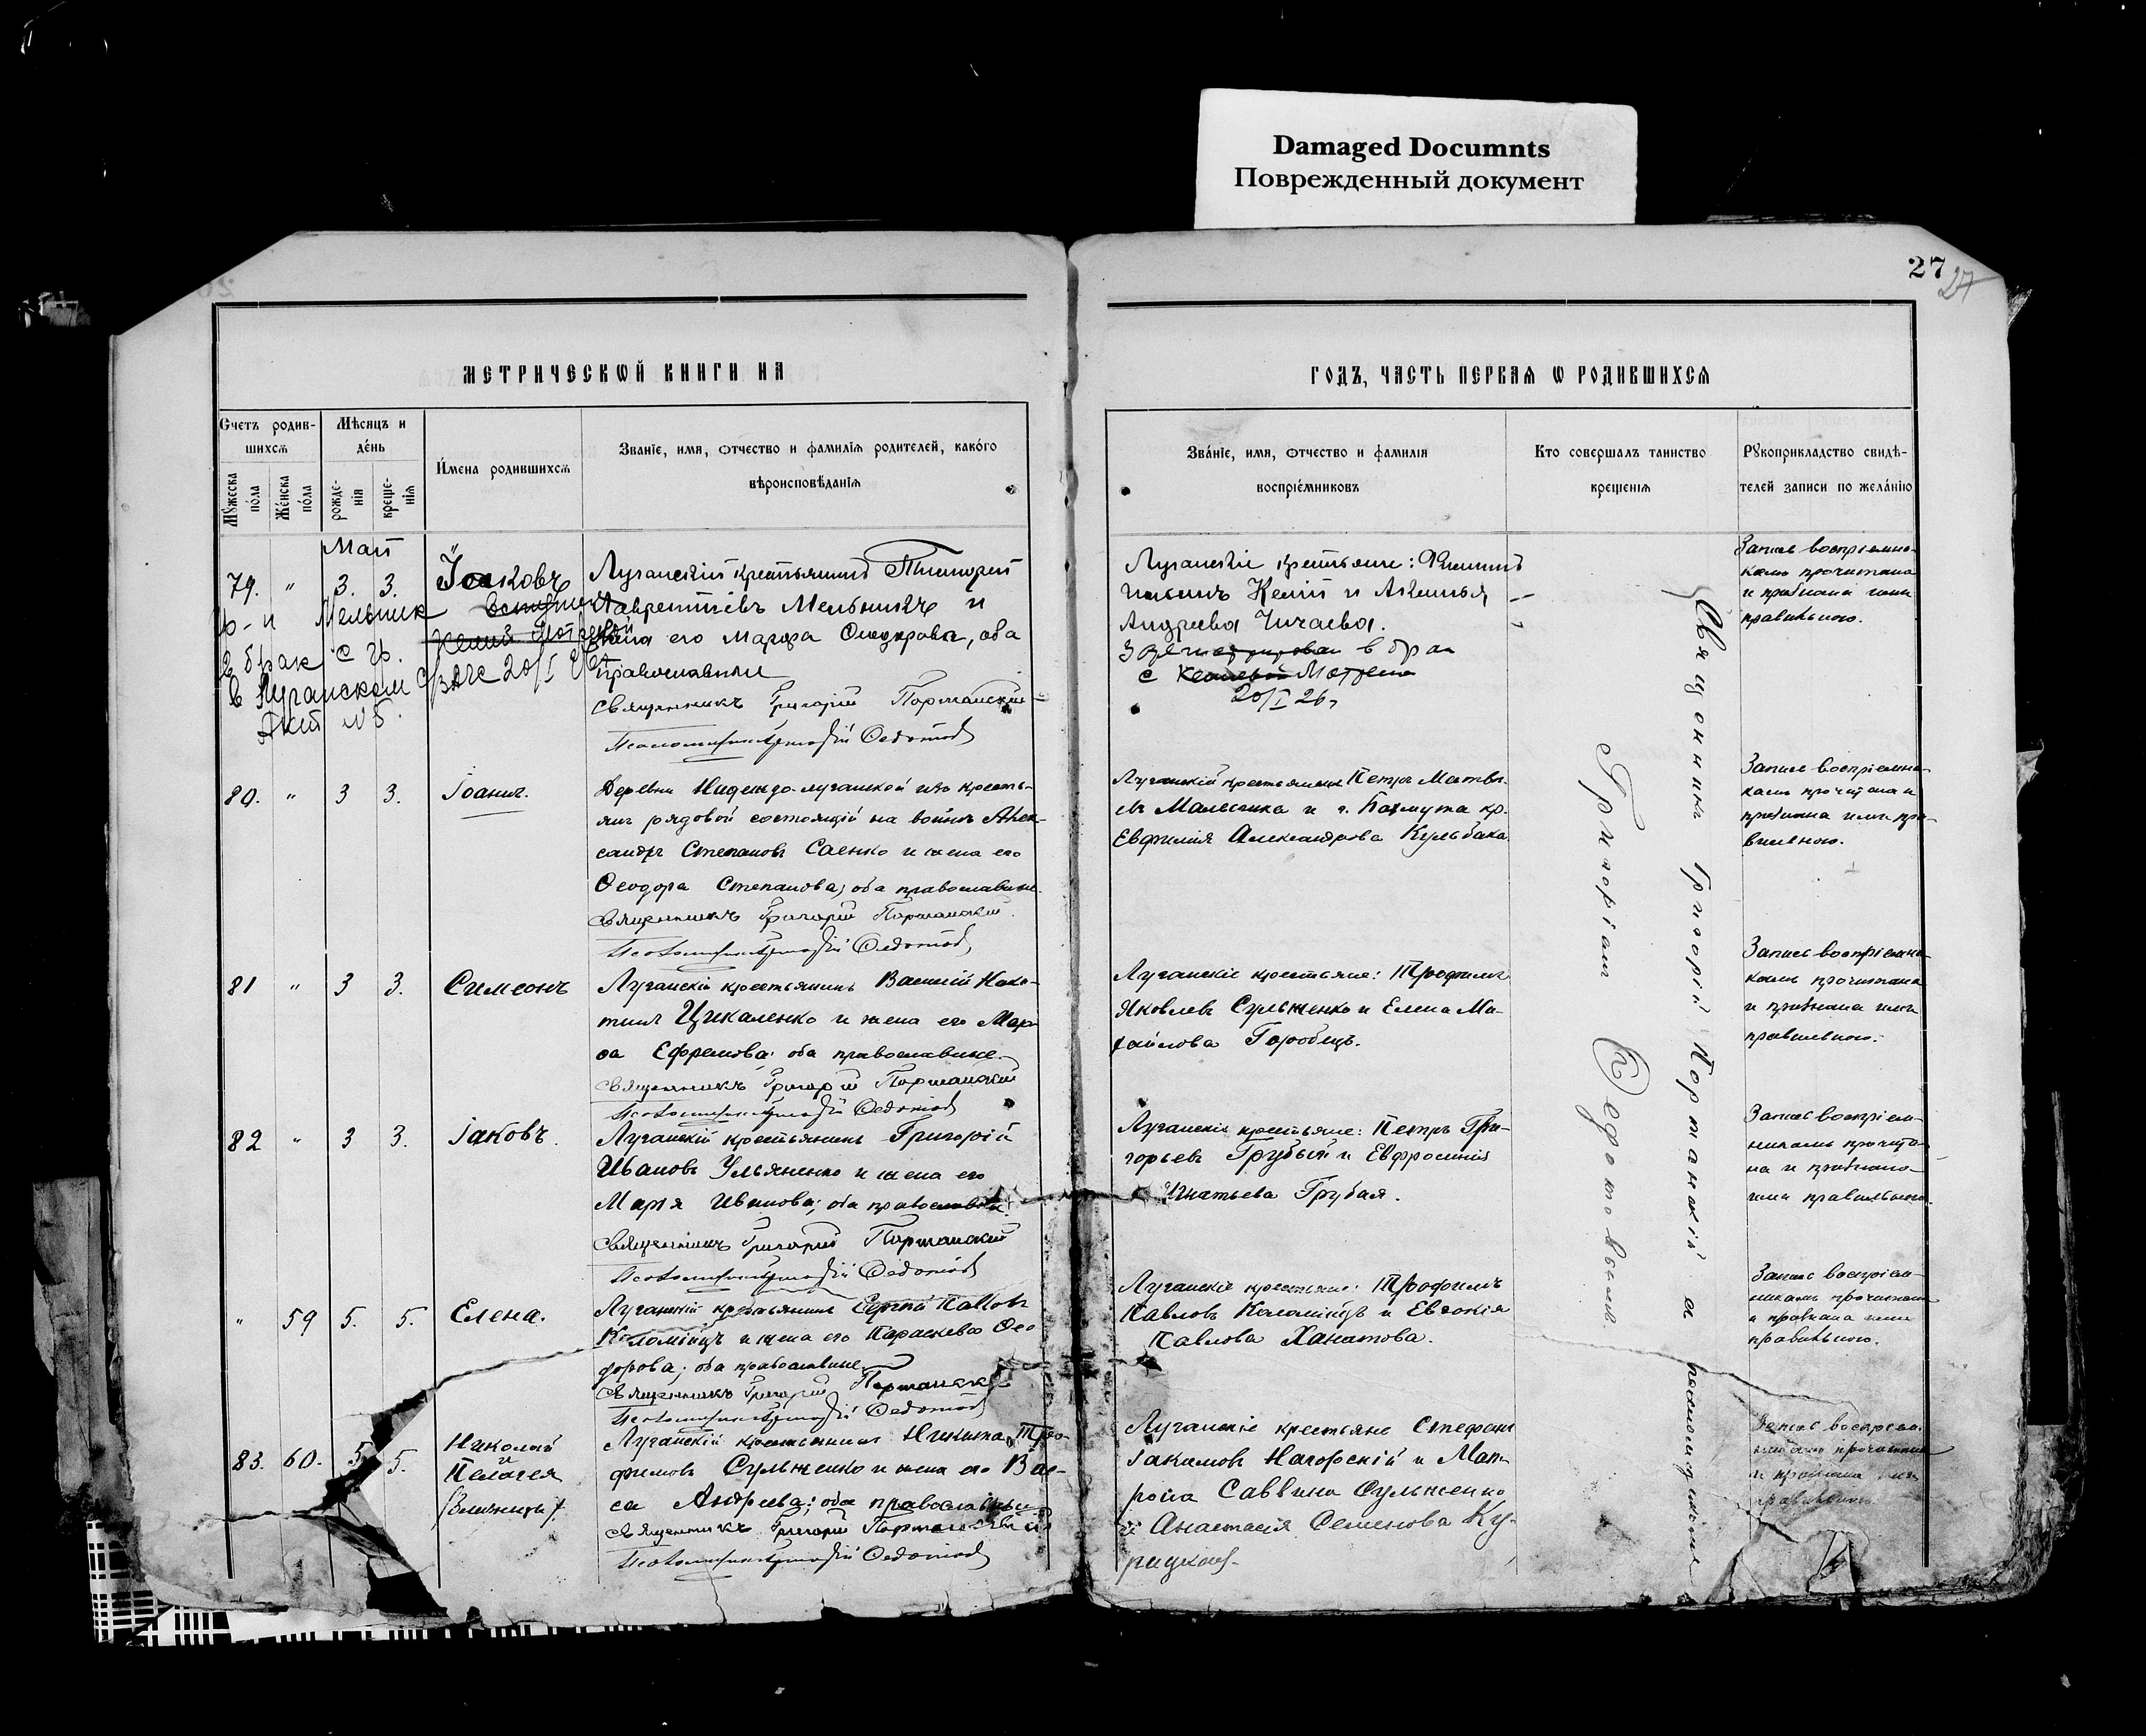 Damaged Documnts
Поврежденный документ
27
27
МЕТРИЧЕСКѠЙ КНИГИ НА
ГОДЪ, ЧАСТЬ ПЕРВАЯ Ѡ РОДИВШИХСЯ
Счетъ родив-
шихсѧ
Мꙋжеска
по́ла
Же́нска
по́ла
Мѣсяцъ и
де́нь
рожде-
нія
креще-
нія
И́мена родившихсѧ
Званіе, имя, ѻтчество и фамилія родителей, како́го
вѣроисповѣданія
Зва́ніе, имя, ѻтчество и фамилія
воспріе́мниковъ
Кто совершалъ таинство
крещенія
Рꙋкоприкладство свидѣ-
телей записи по жела́нію
Май
79. " 3. 3. Іаковъ
Луганскій крестьянинъ
Лаврентіевъ Мельникъ и
жена его Марѳа Ѳеодорова, оба
православные
Священникъ Григорій Портанскій
Псаломщикъ Ѳедотов
Гр-н Мельник
в брак с гр.
в Луганском ЗАГС 20/I
Акт №5.
Луганскіе крестьяне: Филиппъ
Андреева Чичаева.
в брак
с Мотрена
20/I 26
Запись воспріемни-
камъ прочитана
и признана ими
правильною.
80. " 3 3. Іоаннъ.
Деревни луганской изъ кресть-
янъ рядовой состоящій на войнѣ Алек-
сандръ Степановъ Саенко и жена его
Ѳеодора Степанова; оба православные.
Священникъ Григорій Портанскій.
Псаломщикъ Ѳедотов
Луганскій крестьянинъ Петръ Матвѣ-
и г. Бахмута кр.
Евфимія Александрова Кульбака.
Запись воспріемни-
камъ прочитана и
признана ими пра-
вильною.
81 " 3 3. Симеонъ
Луганскій крестьянинъ Василій
Цикаленко и жена его Мар-
ѳа Ефремова; оба православные.
Священникъ Григорій Портанскій
Псаломщикъ Ѳедотов
Луганскіе крестьяне: Трофимъ
Яковлевъ Сульженко и Елена Ми-
хайлова Горобецъ.
Запись воспріемни-
камъ прочитана
и признана ими
правильною.
82 " 3 3. Іаковъ.
Луганскій крестьянинъ Григорій
Ивановъ Ульяненко и жена его
Марія Иванова; оба православны.
Священникъ Григорій Портанскій
Псаломщикъ Ѳедотов
Луганскіе крестьяне: Петръ Гри-
горьевъ Грубый и Евфросинія
Игнатьева Грубая.
Запись воспріем-
никамъ прочита-
на и признана
ими правильною.
" 59 5. 5. Елена.
Луганскій крестьянинъ Сергій Павловъ
Коломійцъ и жена его Параскева Ѳео-
дорова; оба православные.
Священникъ Григорій Портанскій
Псаломщикъ Ѳедотов
Луганскіе крестьяне: Трофимъ
Павловъ Коломійцъ и Евдокія
Павлова Ханатова.
Запись воспріем-
никамъ прочитана
и признана ими
правильною.
83. 60. 5. 5. Николай
и
Пелагея
(близнецы)
Луганскій крестьянинъ Никита Тро-
фимовъ Сульженко и жена его Вас-
са Андреева; оба православные
Священникъ Григорій Портанскій
Псаломщикъ Ѳедотов
Луганскіе крестьяне Стефанъ
Нагорскій и Мат-
рона Саввина Сульженко
и Анастасія Семенова Ку-
Запись воспріем-
никамъ прочитана
и признана ими
правильною
Священникъ Григорій Портанскій и псаломщикомъ
Григоріемъ Ѳедотовымъ